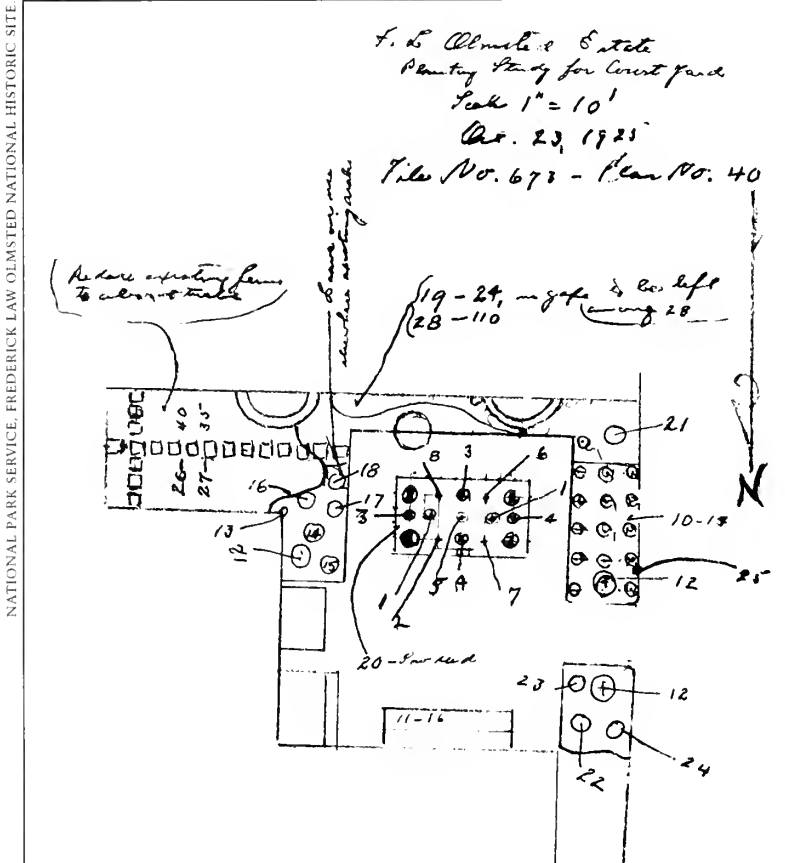 NATIONAL PARK SERVICE, FREDERICK LAW OLMSTED NATIONAL HISTORIC SITE.
F. L Olmsted Estate
Planting Study for Court Yard
Scale 1" = 10'
23, 1925
File No. 673 - Plan No. 40
existing ferns
to
elsewhere
19 - 24, no gaps to be left
28 - 110 among 28
26 - 40
27 - 35
21
18
16
17
13
14
12
15
8
3
6
1
3
4
1
2
5
4
7
10-14
12
25
20 -
23
12
11-16
22
24
N